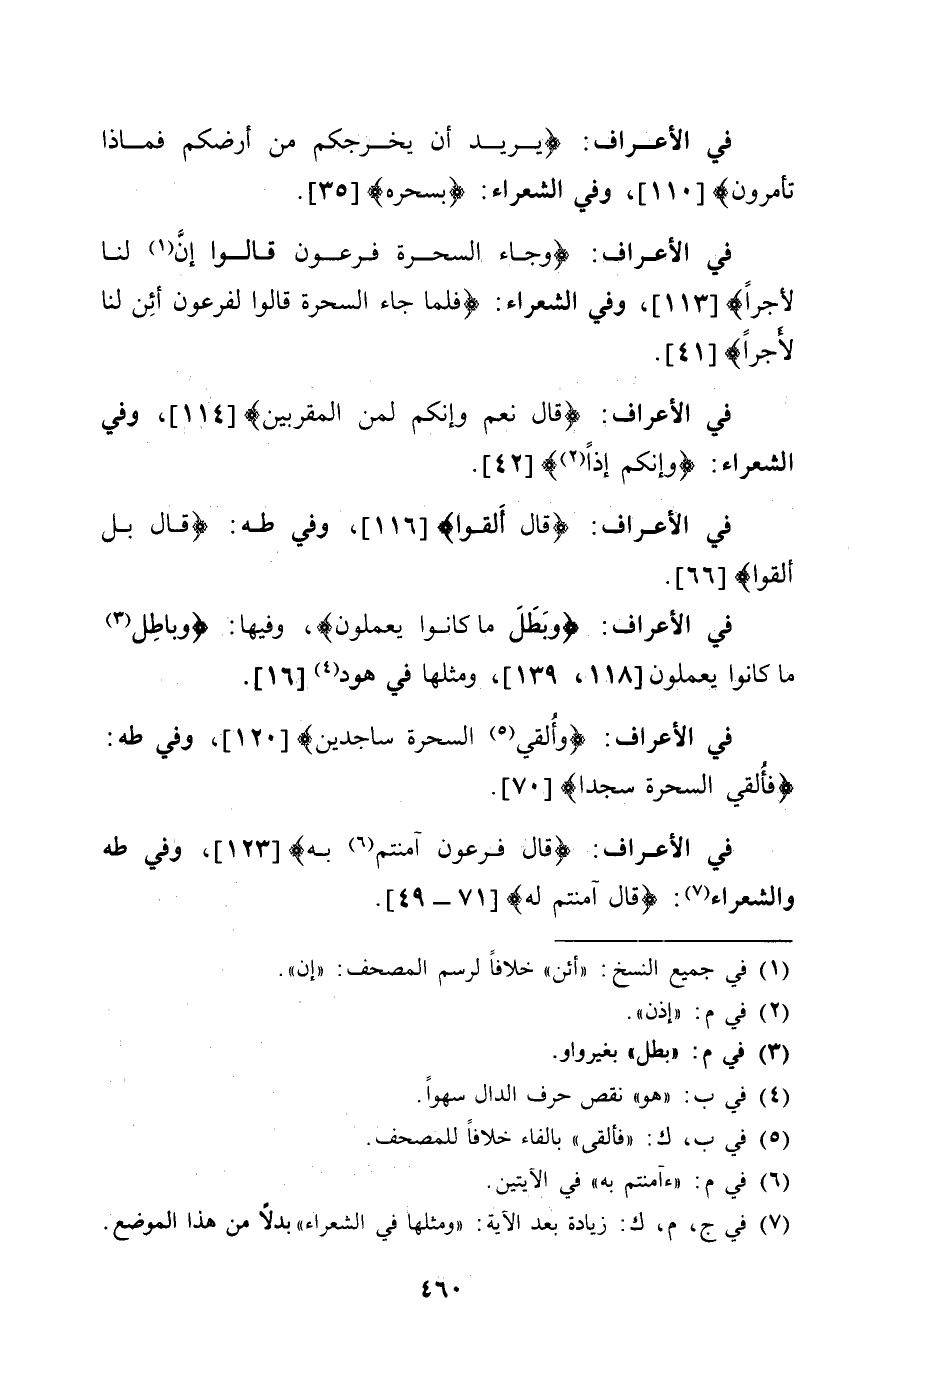 في الأعراف: ﴿يريد أن يخرجكم من أرضكم فماذا
تأمرون﴾ [١١٠]، وفي الشعراء: ﴿بسحره﴾ [٣٥].
في الأعراف: ﴿وجاء السحرة فرعون قالوا إنَّ(١) لنا
لأجراً﴾ [١١٣]، وفي الشعراء: ﴿فلما جاء السحرة قالوا لفرعون أئِن لنا
لأَجراً﴾ [٤١].
في الأعراف: ﴿قال نعم وإنكم لمن المقربين﴾ [١١٤]، وفي
الشعراء: ﴿وإنكم إذاً(٢)﴾ [٤٢].
في الأعراف: ﴿قال أَلقوا﴾ [١١٦]، وفي طه: ﴿قال بل
ألقوا﴾ [٦٦].
في الأعراف: ﴿وبَطَلَ ما كانوا يعملون﴾، وفيها: ﴿وباطِل(٣)
ما كانوا يعملون [١١٨، ١٣٩]، ومثلها في هود(٤) [١٦].
في الأعراف: ﴿وأُلقي(٥) السحرة ساجدين﴾ [١٢٠]، وفي طه:
﴿فأُلقي السحرة سجدا﴾ [٧٠].
في الأعراف: ﴿قال فرعون آمنتم(٦) به﴾ [١٢٣]، وفي طه
والشعراء(٧): ﴿قال آمنتم له﴾ [٧١ – ٤٩].
(١) في جميع النسخ: «أئن» خلافاً لرسم المصحف: «إن».
(٢) في م: «إذن».
(٣) في م: «بطل» بغيرواو.
(٤) في ب: «هو» نقص حرف الدال سهواً.
(٥) في ب، ك: «فألقى» بالفاء خلافاً للمصحف.
(٦) في م: «ءامنتم به» في الآيتين.
(٧) في ج، م، ك: زيادة بعد الآية: «ومثلها في الشعراء» بدلًا من هذا الموضع.
٤٦٠